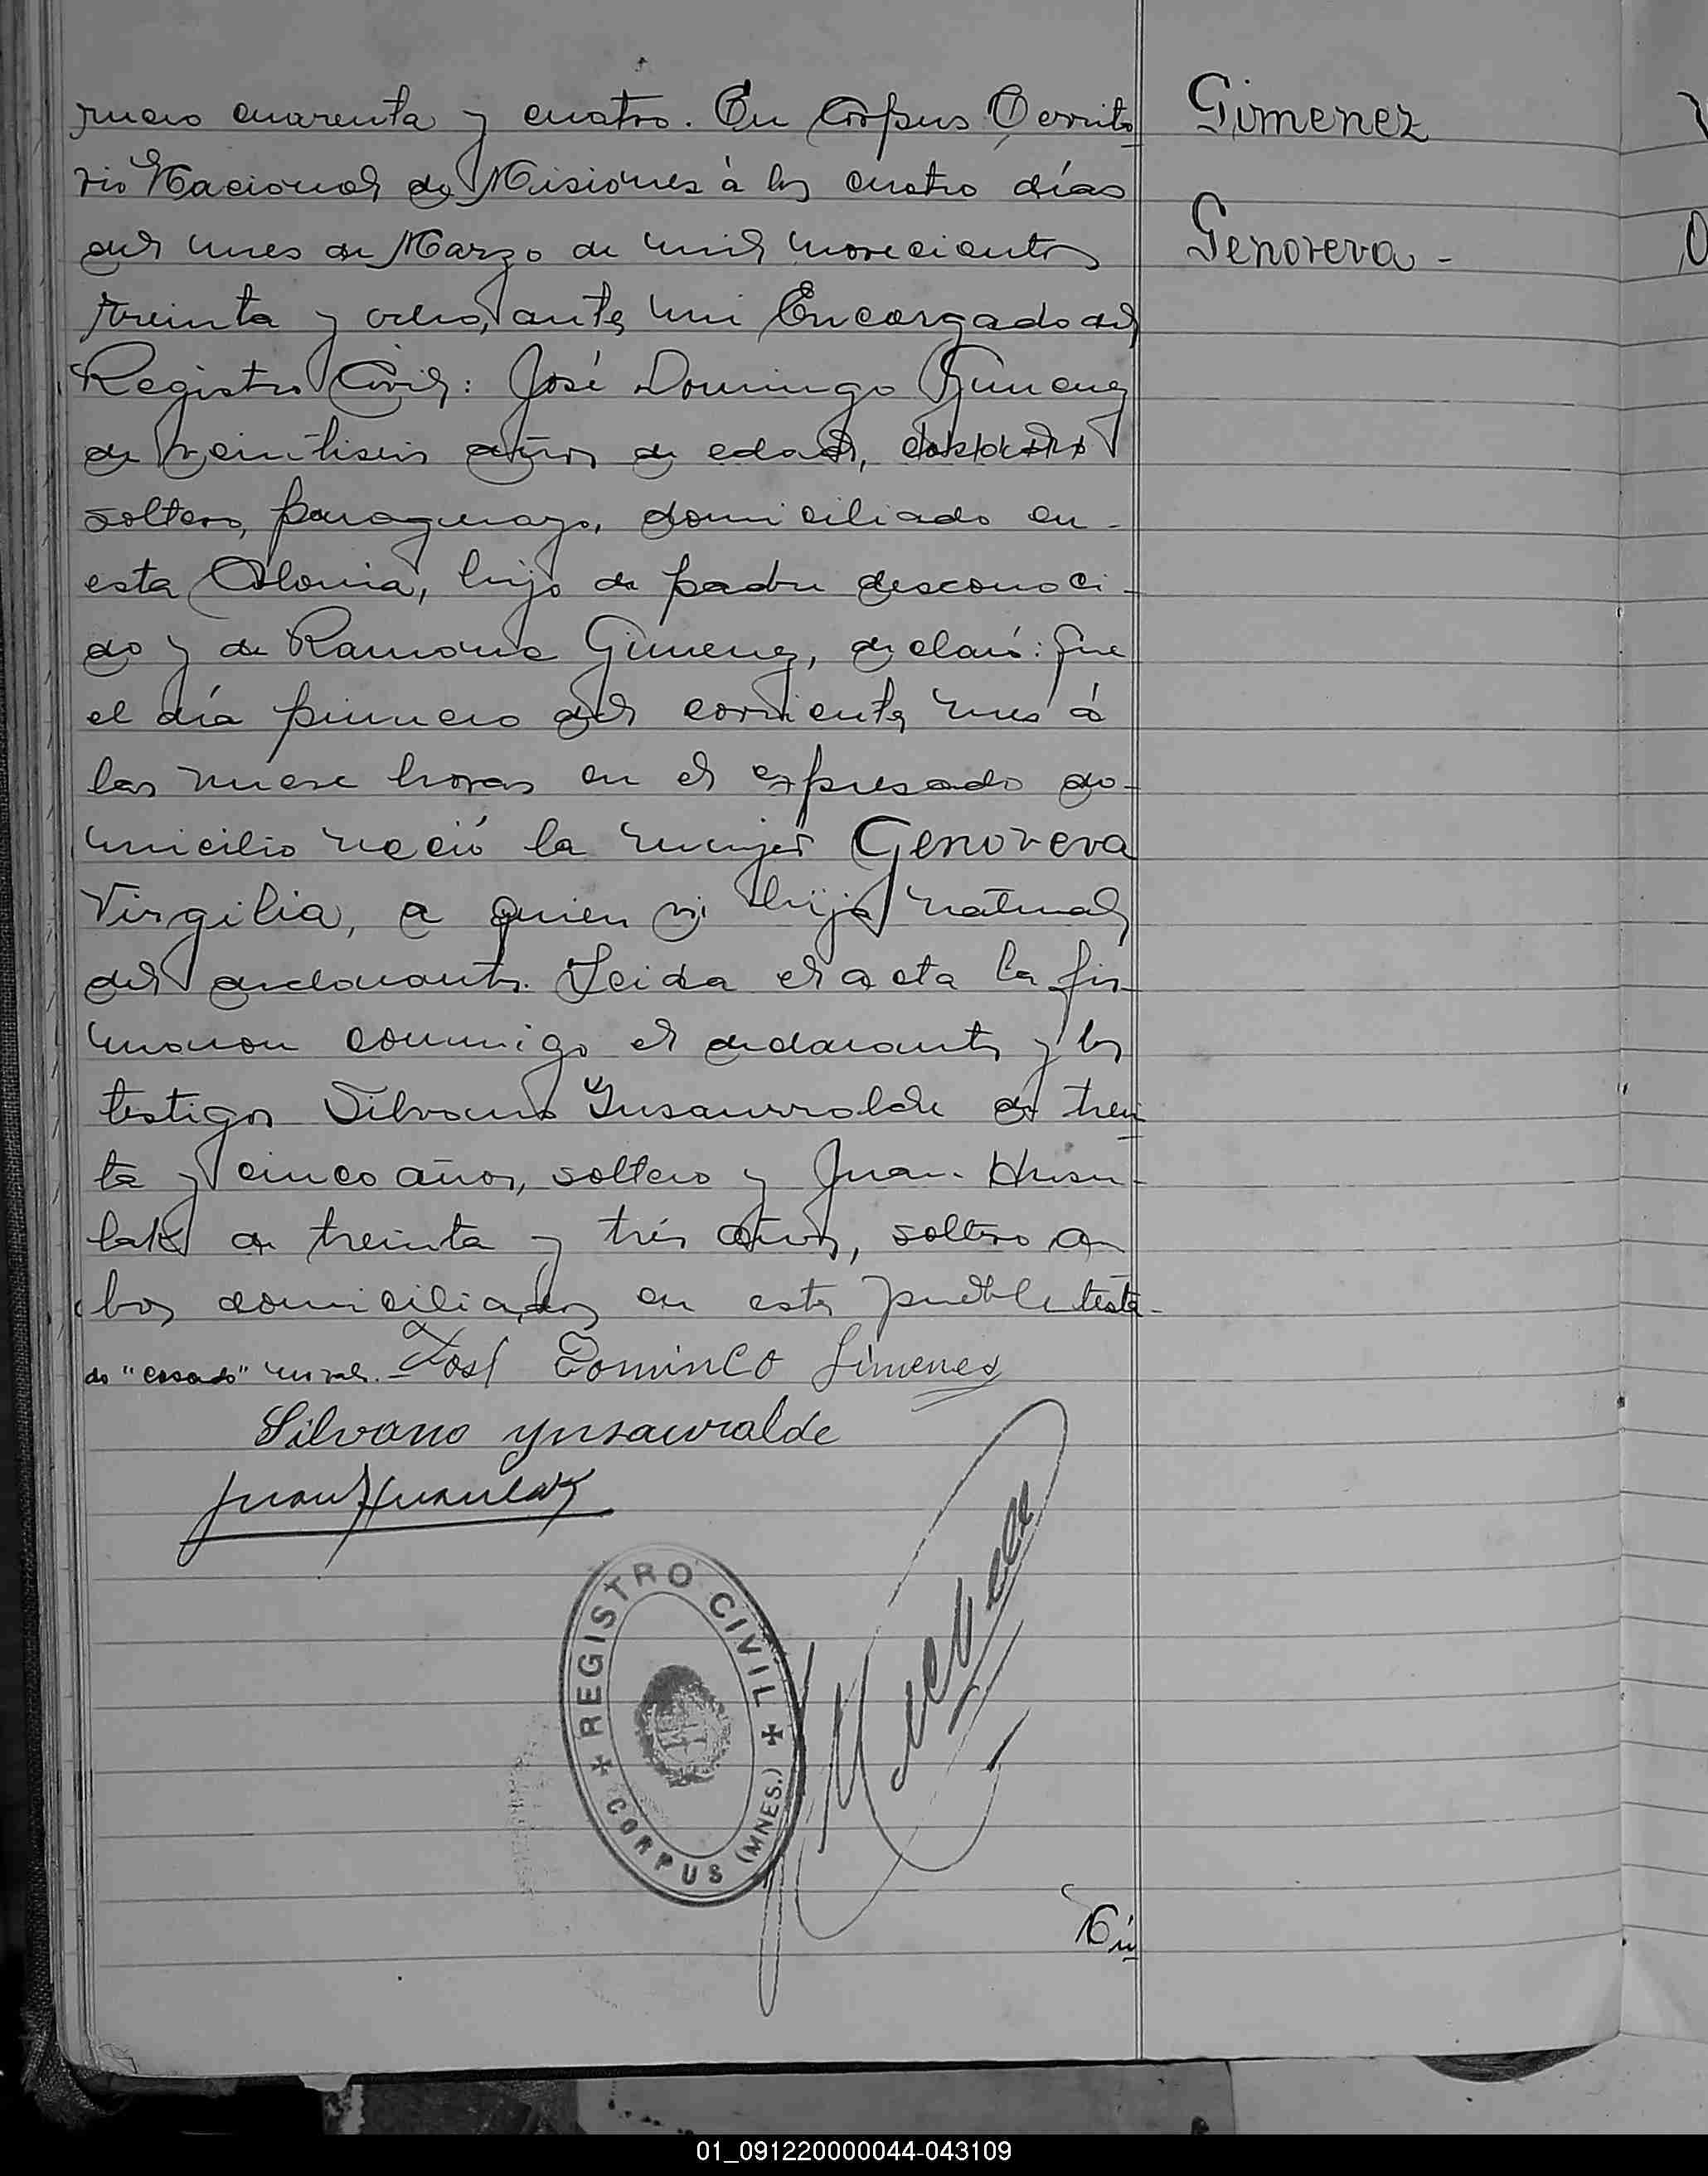 mero cuarenta y cuatro. En Corpus Territo
rio Nacional de Misiones à los cuatro días
del mes de Marzo de mil novecientos
treinta y ocho, ante mi Encargado del
Registro Civil: José Domingo Gimenez
de veintiseis años de edad,
soltero, paraguayo, domiciliado en
esta Colonia, hijo de padre desconoci-
do y de Ramona Gimenez, declaró: Que
el día primero del corriente mes á
las nueve horas en el expresado do-
micilio nació la mujer Genoveva
Virgilia, a quien vi hija natural
del declarante. Leida el acta la fir-
maron conmigo el declarante y los
testigos Silvano Ynsaurralde de trein
ta y cinco años, soltero y Juan Husu-
lak de treinta y trés años, soltero am
bos domiciliados en este pueblo testa-
do "casado" no vale. José Dominco Jimenes
Silvano Ynsaurralde
Juan Husulak
REGISTRO CIVIL
CORPUS (MNES.)
Gimenez
Genoveva -
01_091220000044-043109